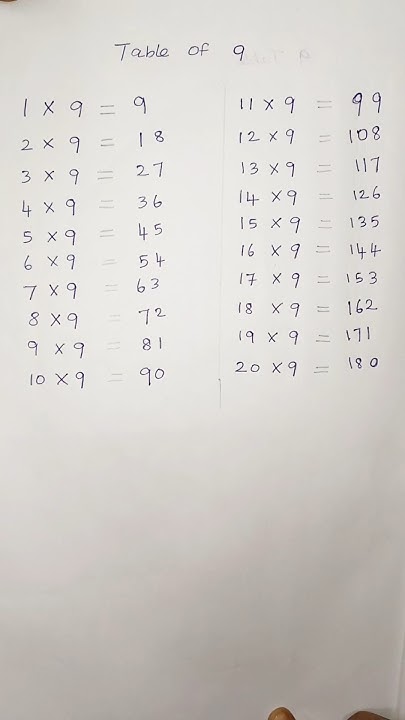 Table of 9
1 × 9 = 9
2 × 9 = 18
3 × 9 = 27
4 × 9 = 36
5 × 9 = 45
6 × 9 = 54
7 × 9 = 63
8 × 9 = 72
9 × 9 = 81
10 × 9 = 90
11 × 9 = 99
12 × 9 = 108
13 × 9 = 117
14 × 9 = 126
15 × 9 = 135
16 × 9 = 144
17 × 9 = 153
18 × 9 = 162
19 × 9 = 171
20 × 9 = 180